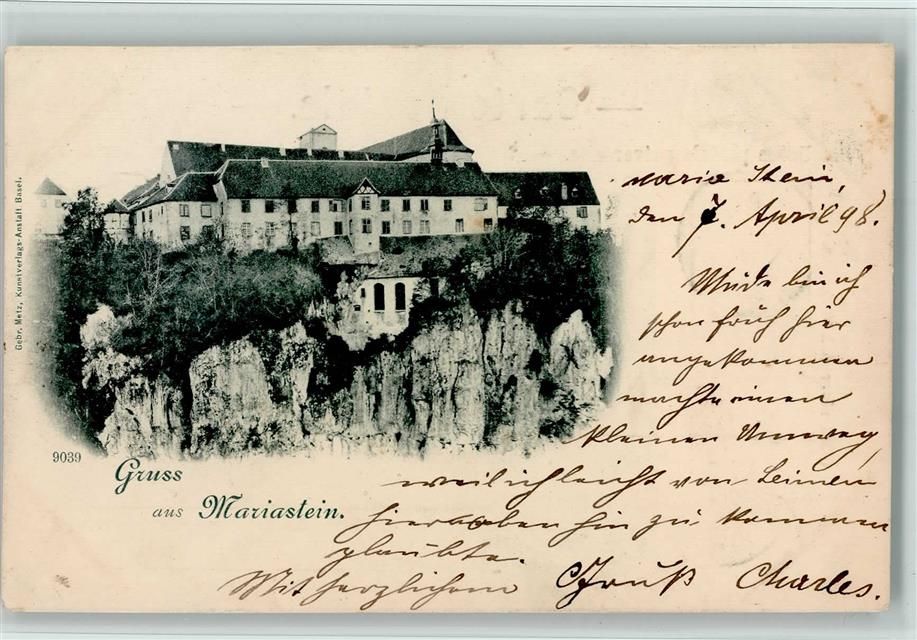 Gebr. Metz, Kunstverlags-Anstalt Basel.
9039
Gruss
aus Mariastein.
Maria Stein,
den 7. April 98.
Müde bin ich
schon früh hier
angekommen
machte einen
kleinen Umweg,
weil ich leicht von Leimen
hier oben hin zu kommen
glaubte.
Mit herzlichem Gruß Charles.